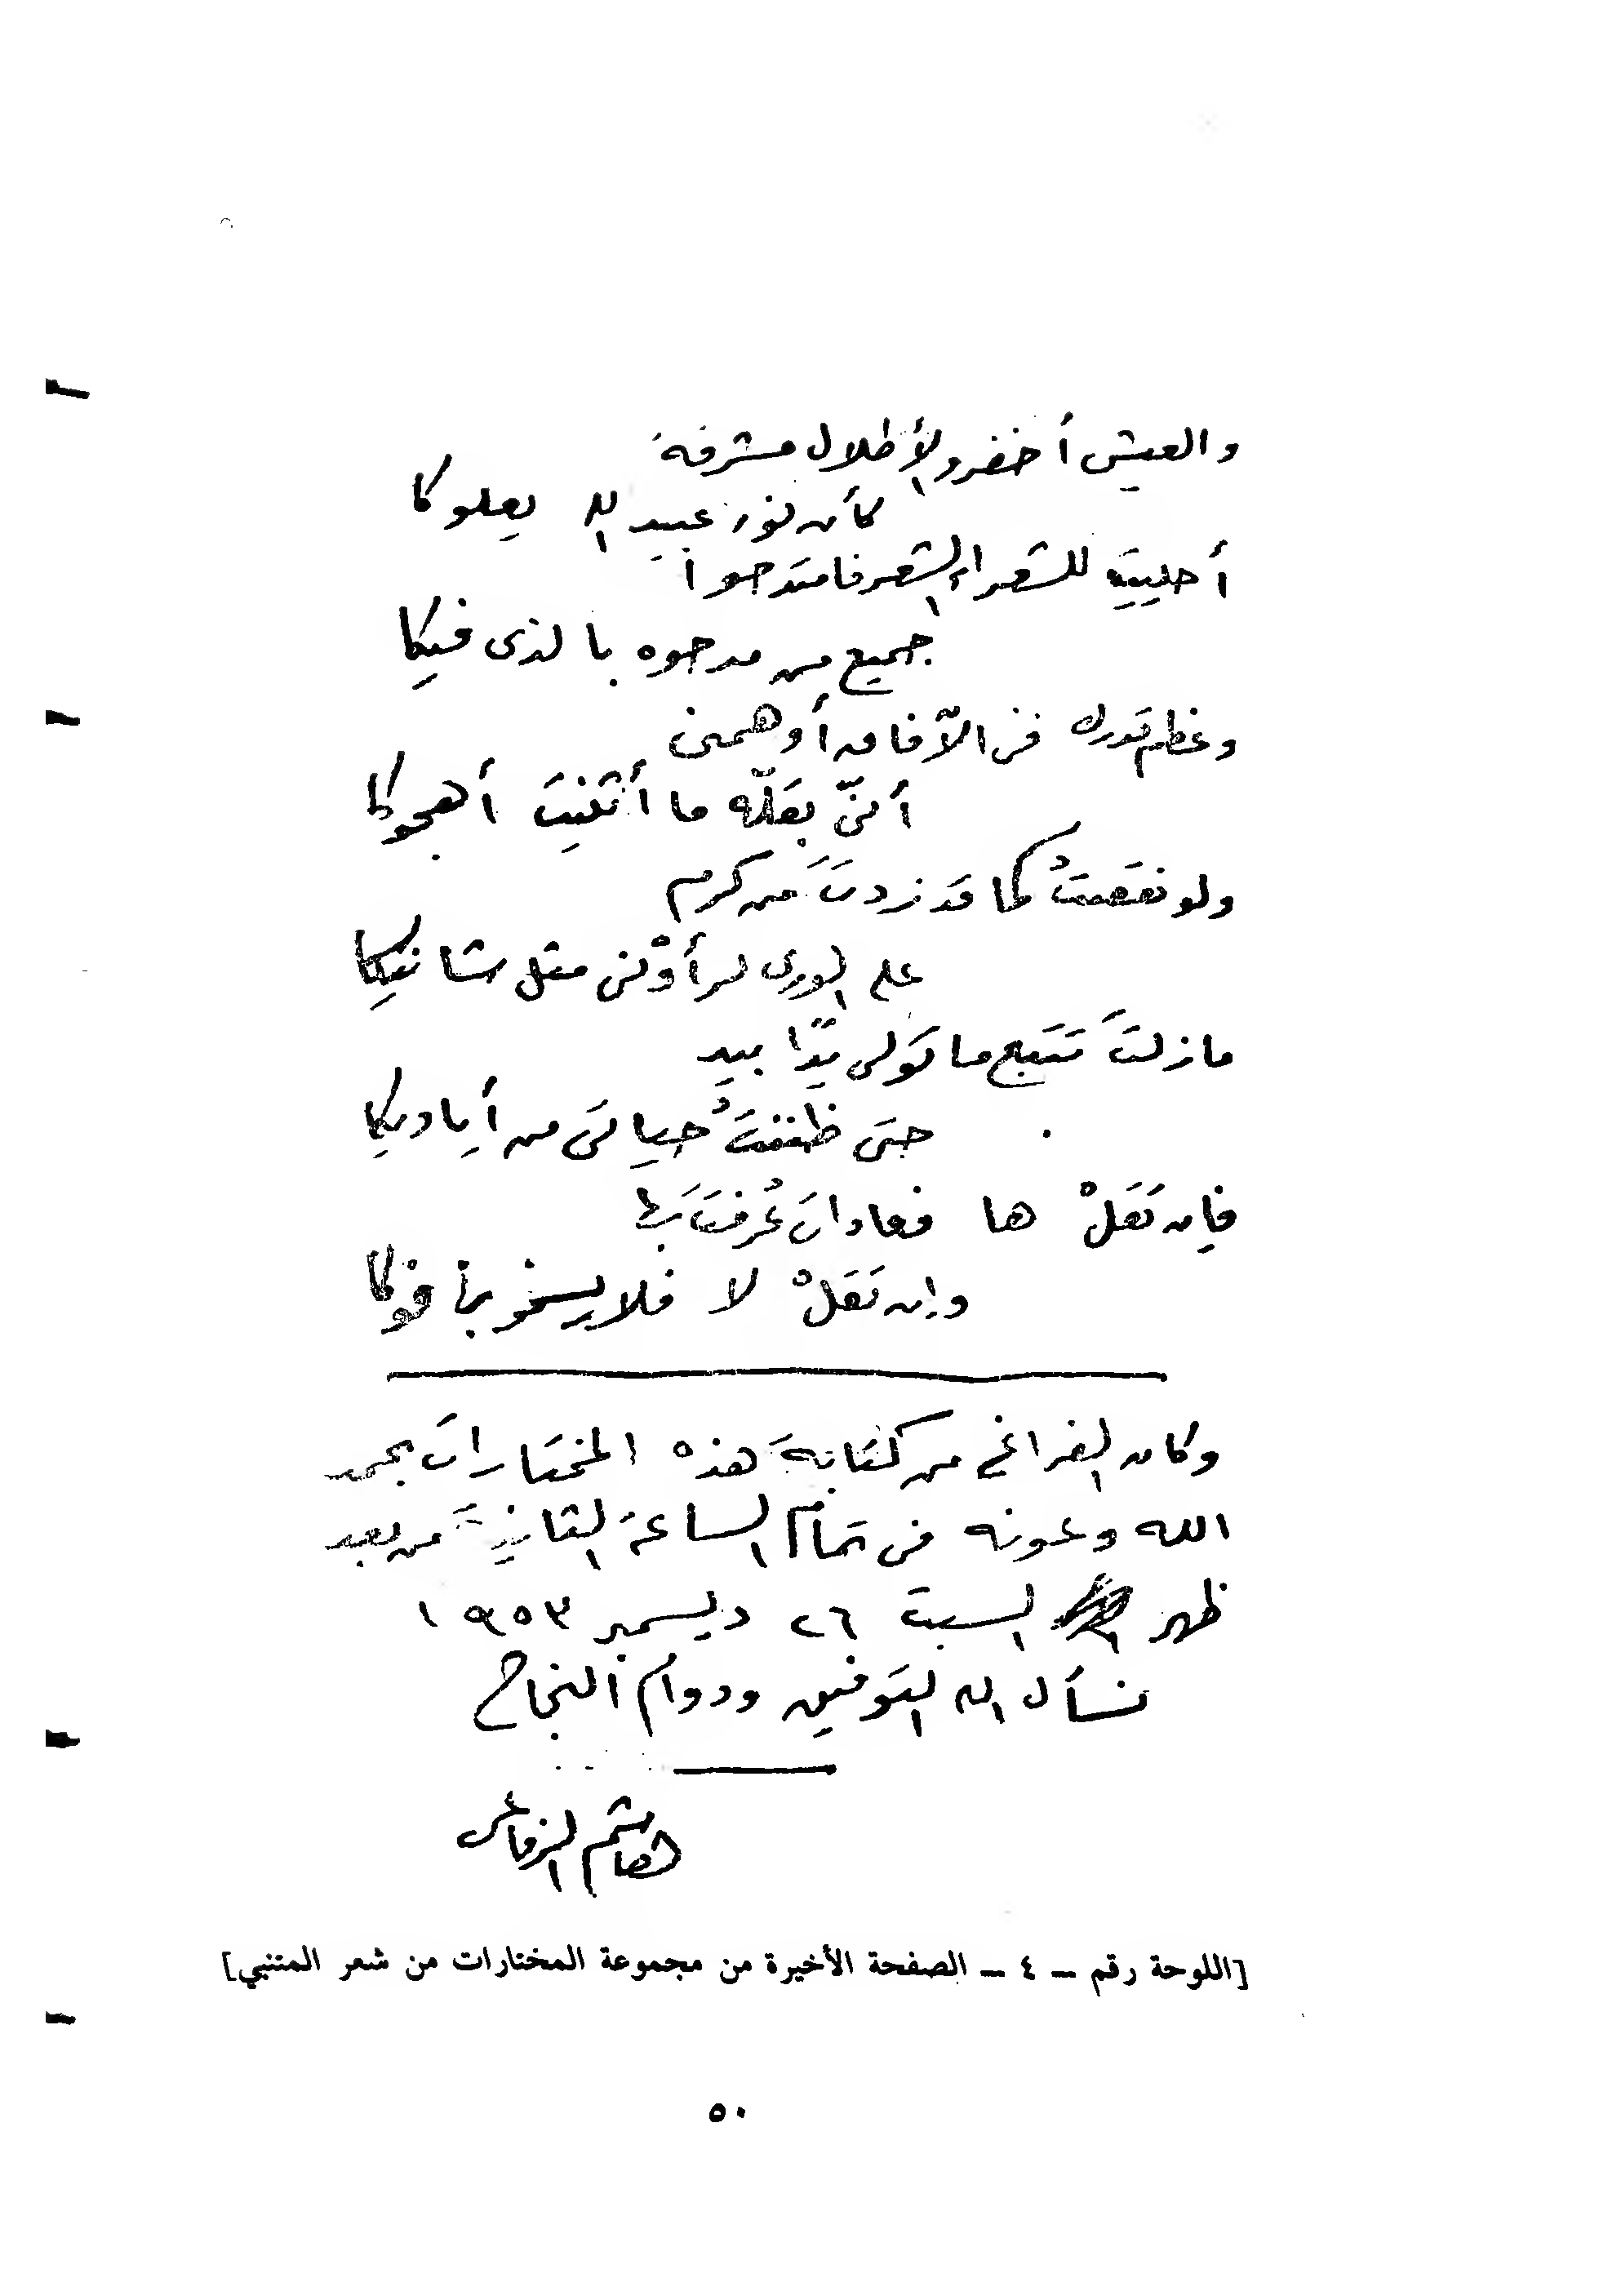 والعيش أخضر والأطلال مشرفة
كأن نور عبيد الله يعلوكا
أحييت للشعراء الشعر فامتدحوا
جميع من مدحوه بالذى فيكا
وعظم قدرك فى الآفاق أوهمنى
أنىّ بقلّه ما أثنيت أهجوكا
ولو نقصتُ كما قد زدتَ من كرم
على الورى لرأوْنى مثل شانيكا
ما زلتَ تتبع ما تولى يدًا بيد
حتى ظننتُ حياتى من أياديكا
فإن تقلْ ها فعادات عُرفت بها
وإن تقلْ لا فلا يسخو بها فوكا
وكان الفراغ من كتابة هذه المختارات بحمد
الله وعونه فى تمام الساعة الثانية من بعد
ظهر السبت ٢٦ ديسمبر ١٩٥٣
نسأل الله التوفيق ودوام النجاح
هاشم الرفاعى
[اللوحة رقم – ٤ – الصفحة الأخيرة من مجموعة المختارات من شعر المتنبي]
٥٠